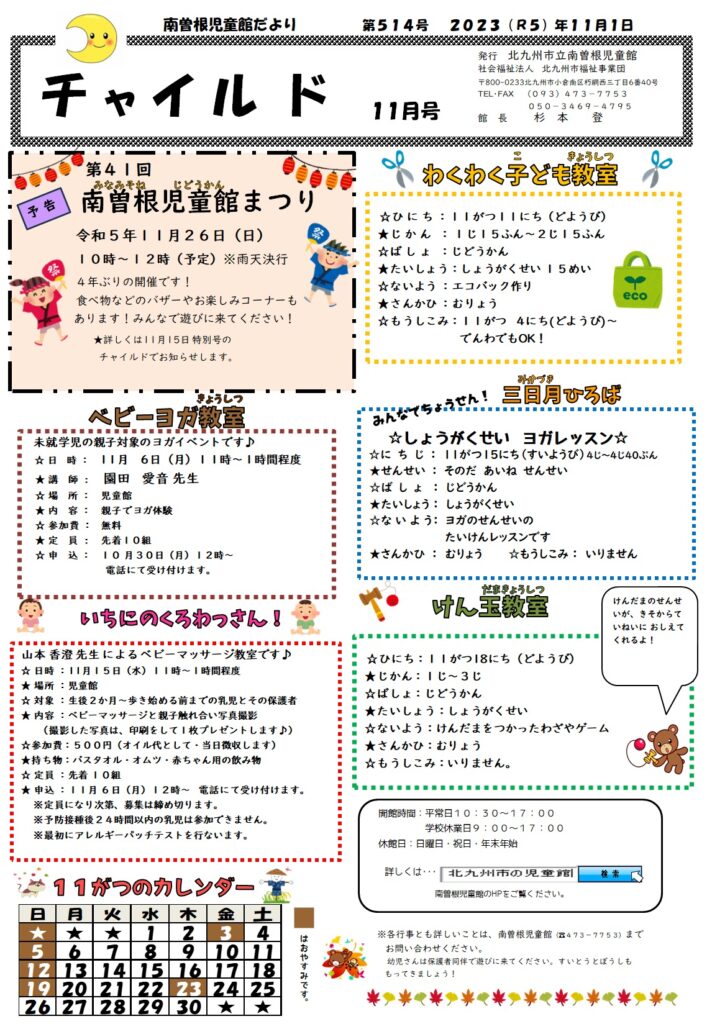 南曽根児童館だより 第514号 2023(R5)年11月1日
チャイルド 11月号
発行 北九州市立南曽根児童館
社会福祉法人 北九州市福祉事業団
〒800-0233北九州市小倉南区朽網西三丁目6番40号
TEL・FAX (093)473-7753
050-3469-4795
館長 杉本 登
予告
第41回
みなみそね じどうかん
南曽根児童館まつり
令和5年11月26日(日)
10時~12時(予定)※雨天決行
4年ぶりの開催です!
食べ物などのバザーやお楽しみコーナーも
あります!みんなで遊びに来てください!
★詳しくは11月15日特別号の
チャイルドでお知らせします。
祭
祭
こ きょうしつ
わくわく子ども教室
☆ひにち:11がつ11にち(どようび)
★じかん:1じ15ふん~2じ15ふん
☆ばしょ:じどうかん
★たいしょう:しょうがくせい 15めい
☆ないよう:エコバック作り
★さんかひ:むりょう
☆もうしこみ:11がつ 4にち(どようび)~
でんわでもOK!
eco
きょうしつ
ベビーヨガ教室
未就学児の親子対象のヨガイベントです♪
☆日時: 11月 6日(月)11時~1時間程度
★講師: 園田 愛音 先生
☆場所: 児童館
★内容: 親子でヨガ体験
☆参加費: 無料
★定員: 先着10組
☆申込: 10月30日(月)12時~
電話にて受け付けます。
みんなでちょうせん!
みかづき
三日月ひろば
☆しょうがくせい ヨガレッスン☆
☆にちじ:11がつ15にち(すいようび)4じ~4じ40ぷん
★せんせい:そのだ あいね せんせい
☆ばしょ:じどうかん
★たいしょう:しょうがくせい
☆ないよう:ヨガのせんせいの
たいけんレッスンです
★さんかひ:むりょう ☆もうしこみ:いりません
いちにのくろわっさん!
山本 香澄 先生によるベビーマッサージ教室です♪
☆日時:11月15日(水)11時~1時間程度
★場所:児童館
☆対象:生後2か月~歩き始める前までの乳児とその保護者
★内容:ベビーマッサージと親子触れ合い写真撮影
(撮影した写真は、印刷をして1枚プレゼントします♪)
☆参加費:500円(オイル代として・当日徴収します)
★持ち物:バスタオル・オムツ・赤ちゃん用の飲み物
☆定員:先着10組
★申込:11月6日(月)12時~ 電話にて受け付けます。
※定員になり次第、募集は締め切ります。
※予防接種後24時間以内の乳児は参加できません。
※最初にアレルギーパッチテストを行ないます。
だまきょうしつ
けん玉教室
けんだまのせんせ
いが、きそからて
いねいに おしえて
くれるよ!
☆ひにち:11がつ18にち(どようび)
★じかん:1じ~3じ
☆ばしょ:じどうかん
★たいしょう:しょうがくせい
☆ないよう:けんだまをつかったわざやゲーム
★さんかひ:むりょう
☆もうしこみ:いりません。
開館時間:平常日10:30~17:00
学校休業日9:00~17:00
休館日:日曜日・祝日・年末年始
詳しくは・・・ 北九州市の児童館 検索
南曽根児童館のHPをご覧ください。
11がつのカレンダー
日 月 火 水 木 金 土
★ ★ ★ 1 2 3 4
5 6 7 8 9 10 11
12 13 14 15 16 17 18
19 20 21 22 23 24 25
26 27 28 29 30 ★ ★
はおやすみです。
※各行事とも詳しいことは、南曽根児童館(☎473-7753)まで
お問い合わせください。
幼児さんは保護者同伴で遊びに来てください。すいとうとぼうしも
もってきましょう!